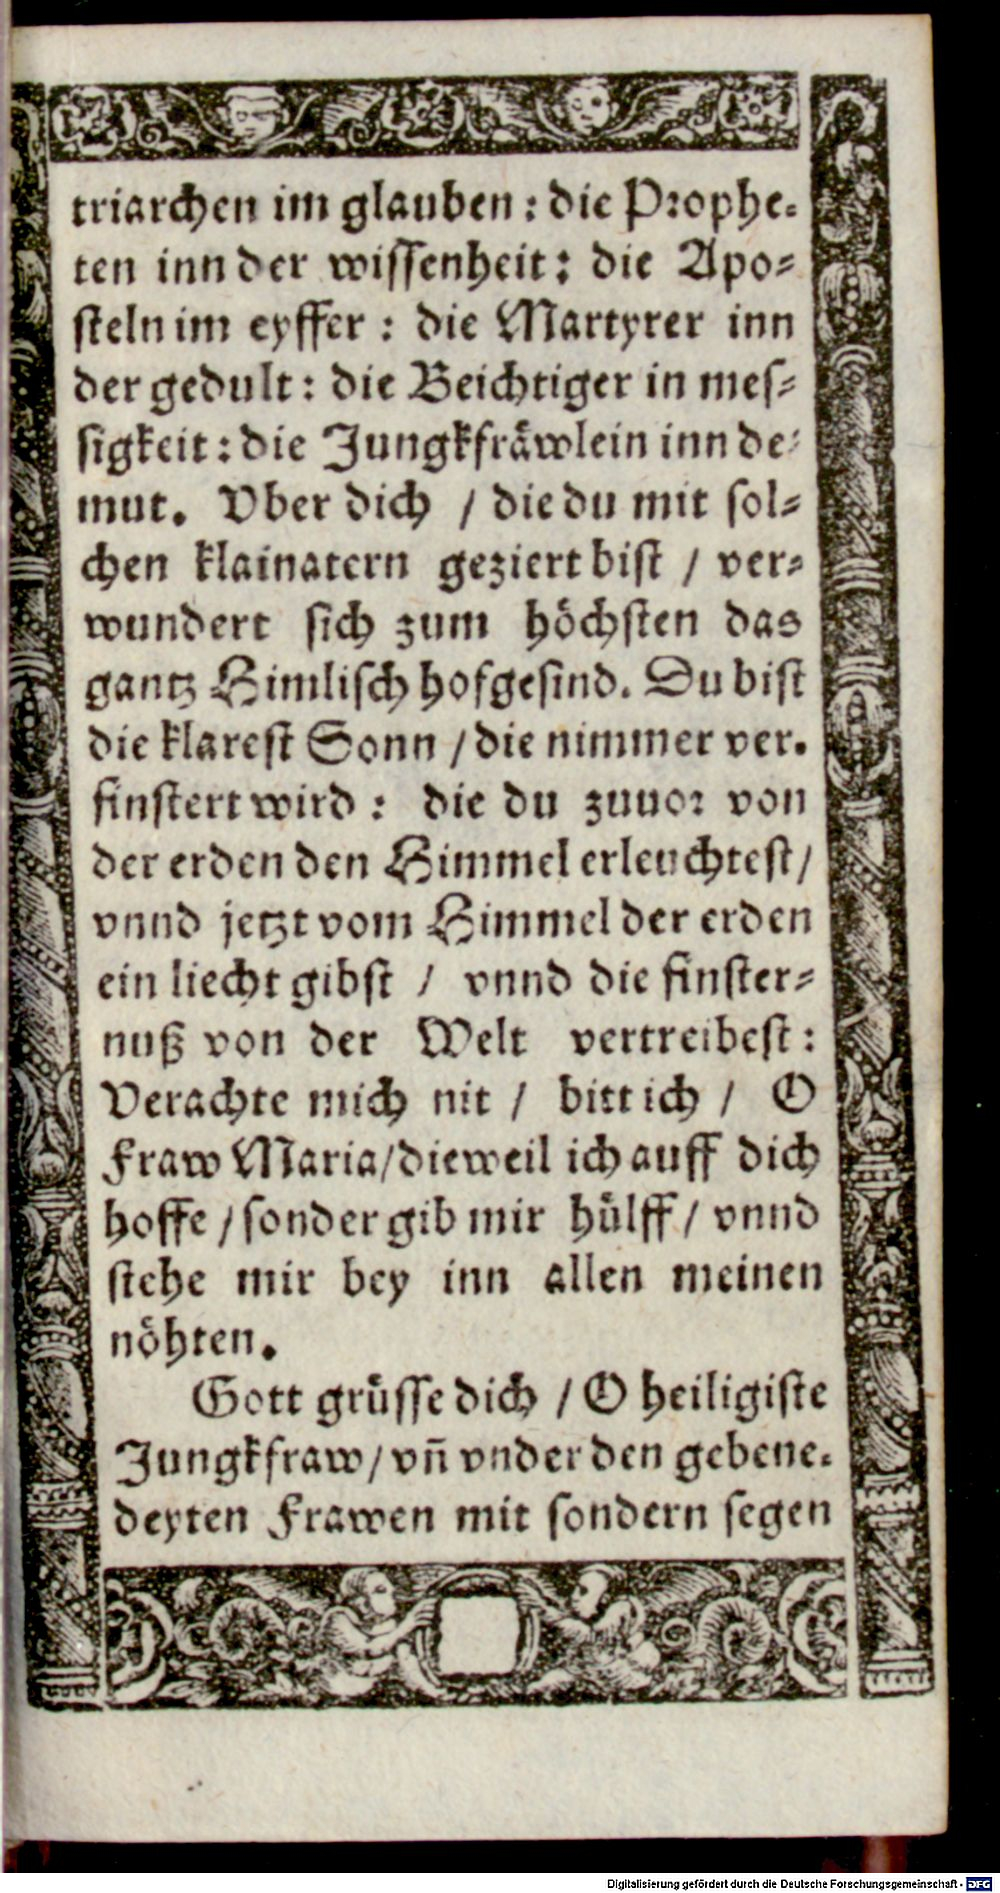 triarchen im glauben : die Prophe-
ten inn der wissenheit : die Apo-
steln im eyffer : die Martyrer inn
der gedult : die Beichtiger in mes-
sigkeit : die Jungkfräwlein inn de-
mut. Vber dich / die du mit sol-
chen klainatern geziert bist / ver-
wundert sich zum höchsten das
gantz Himlisch hofgesind. Du bist
die klarest Sonn / die nimmer ver-
finstert wird : die du zuuor von
der erden den Himmel erleuchtest /
vnnd jetzt vom Himmel der erden
ein liecht gibst / vnnd die finster-
nuß von der Welt vertreibest :
Verachte mich nit / bitt ich / O
Fraw Maria / dieweil ich auff dich
hoffe / sonder gib mir hülff / vnnd
stehe mir bey inn allen meinen
nöhten.
Gott grüsse dich / O heiligiste
Jungkfraw / vn̄ vnder den gebene-
deyten Frawen mit sondern segen
Digitalisierung gefördert durch die Deutsche Forschungsgemeinschaft - DFG